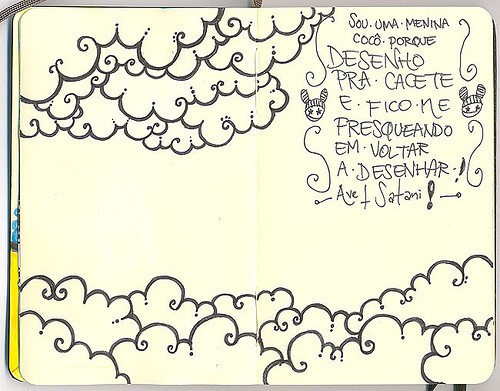 SOU·UMA·MENINA
COCÔ·PORQUE
DESENHO
PRA·CACETE
E·FICO·ME
FRESQUEANDO
EM·VOLTAR
A·DESENHAR·!
Ave † Satani!